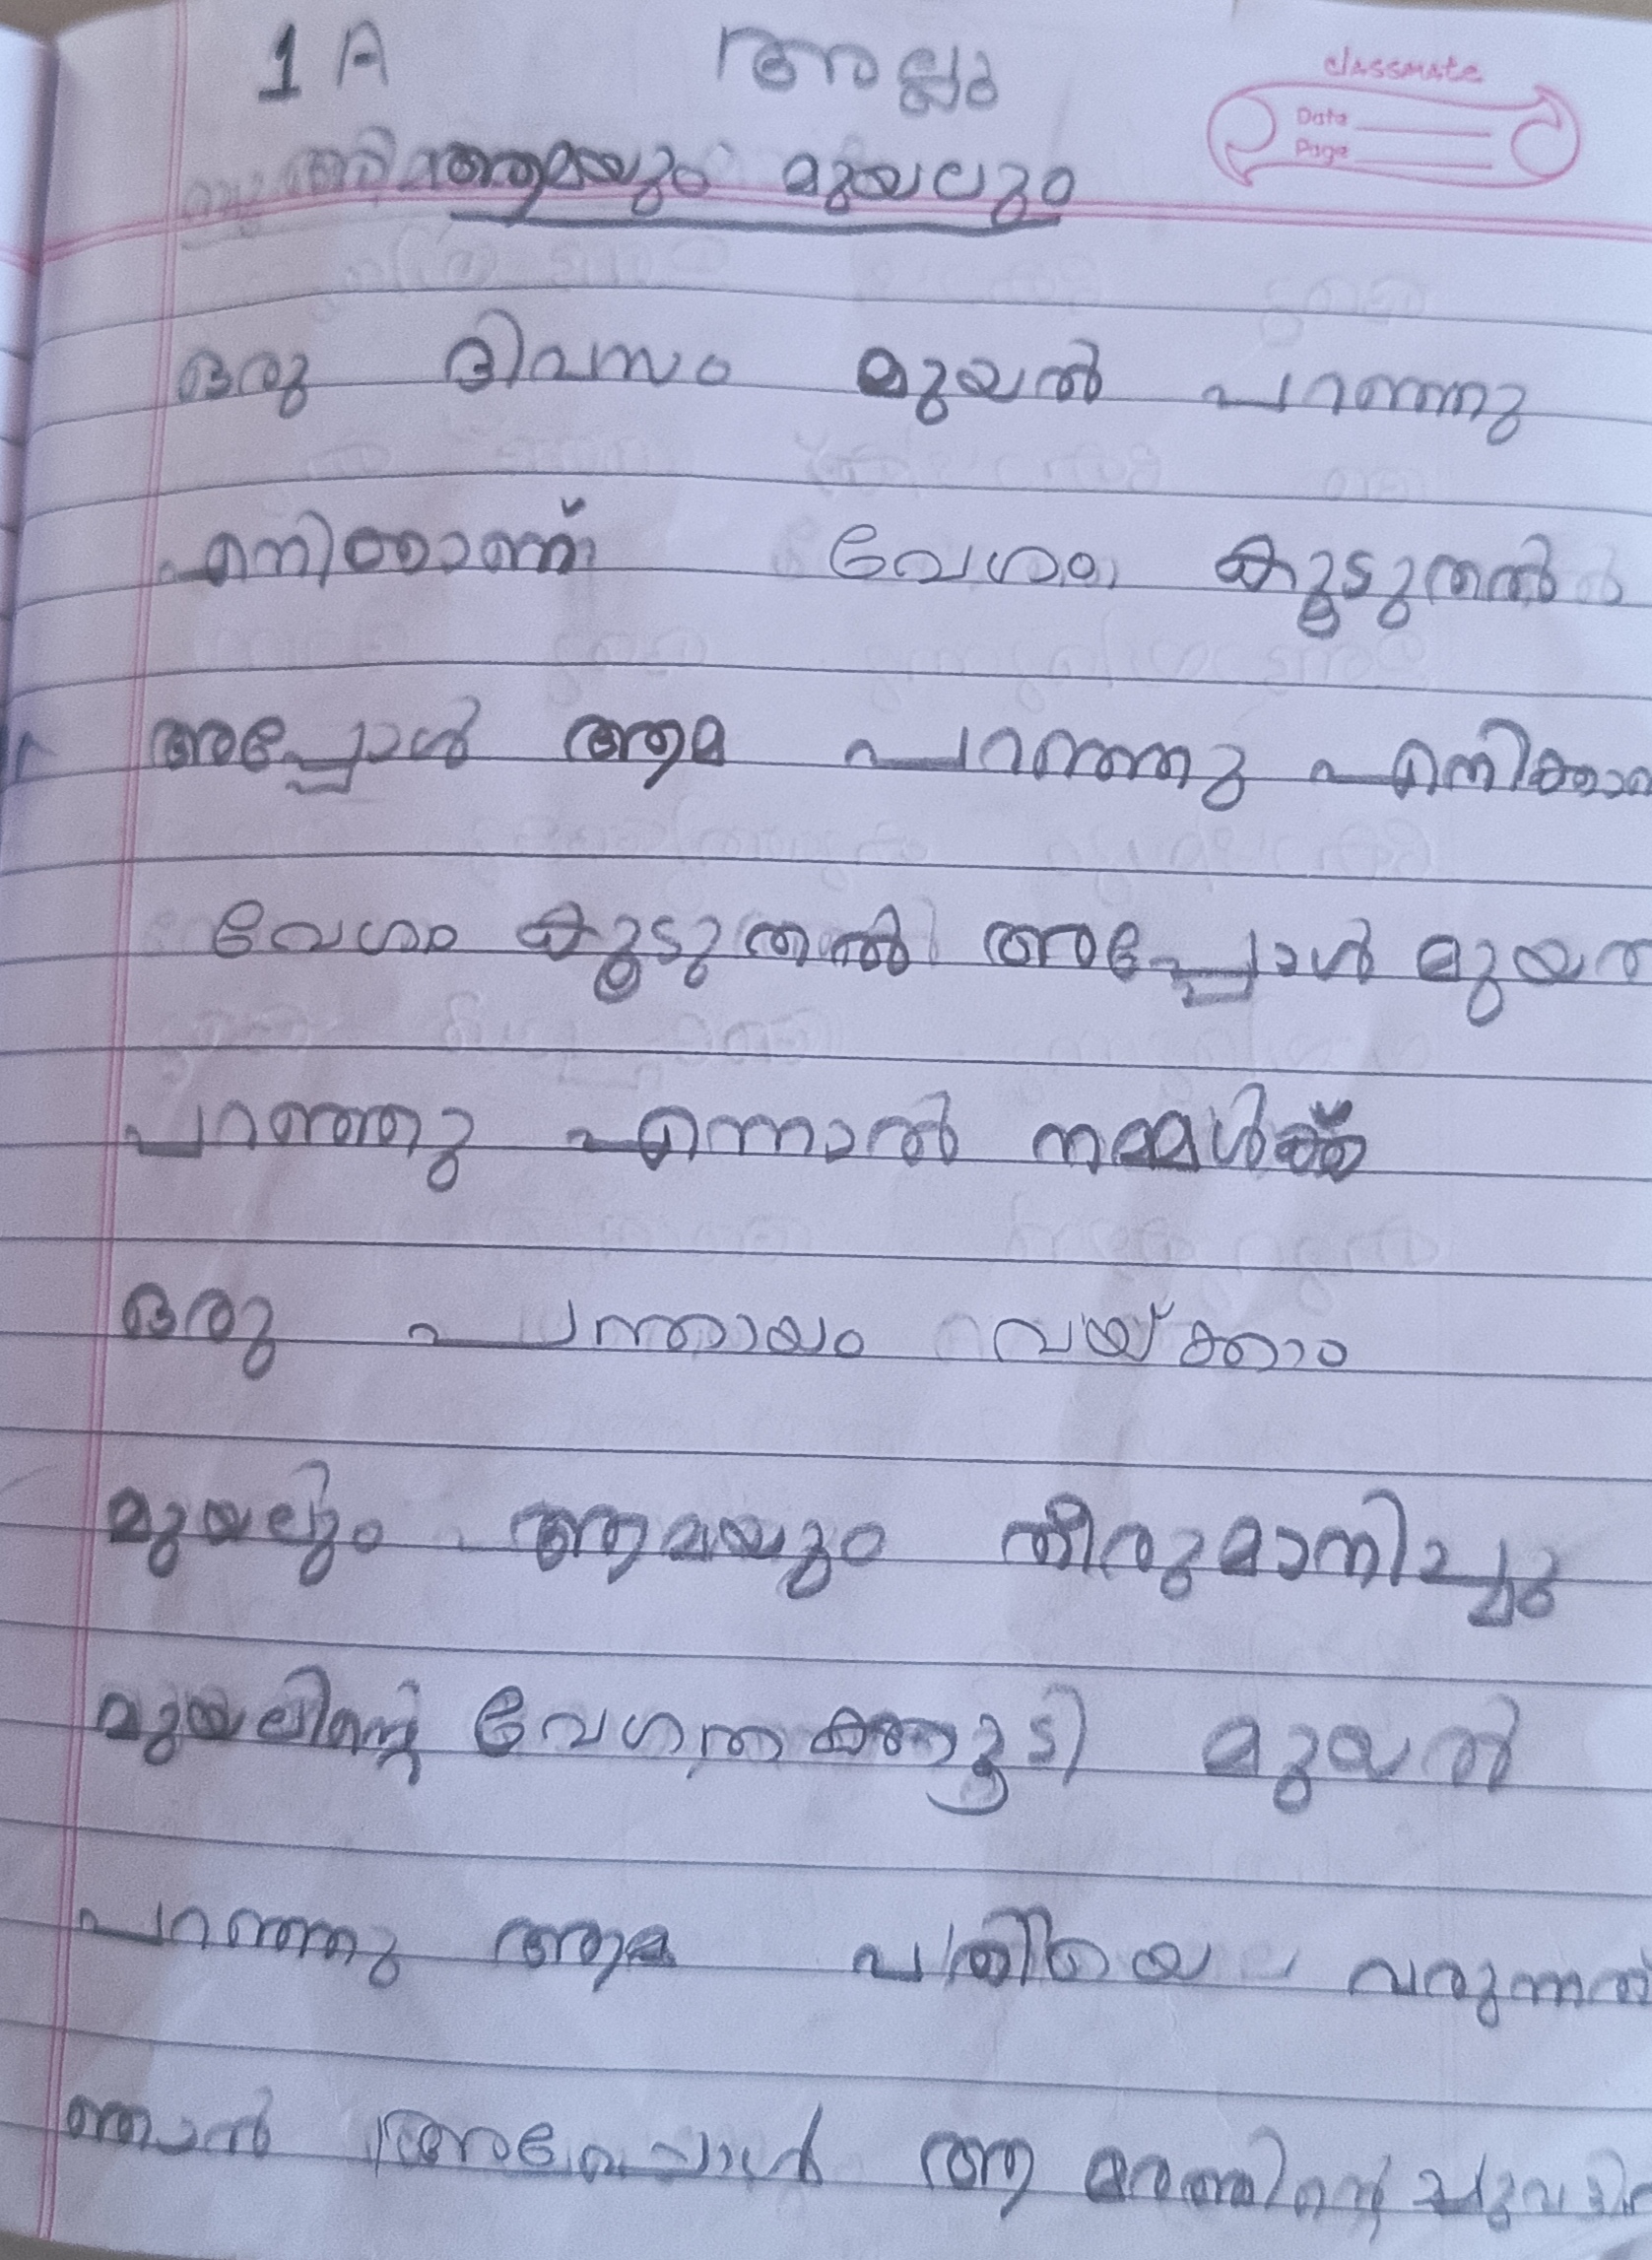 1 A അല്ലു
classmate
Date
Page
ആമയും മുയലും
ഒരു ദിവസം മുയൽ പറഞ്ഞു
എനിക്കാണ് വേഗം കൂടുതൽ
അപ്പോൾ ആമ പറഞ്ഞു എനിക്കാണ
വേഗം കൂടുതൽ അപ്പോൾ മുയൽ
പറഞ്ഞു എന്നാൽ നമ്മൾക്ക്
ഒരു പന്തായം വയ്ക്കാം
മുയലും ആമയും തീരുമാനിച്ചു
മുയലിന്റെ വേഗത കൂടി മുയൽ
പറഞ്ഞു ആമ വരുന്നത്
ഞാൻ ആ മരത്തിന്റെ